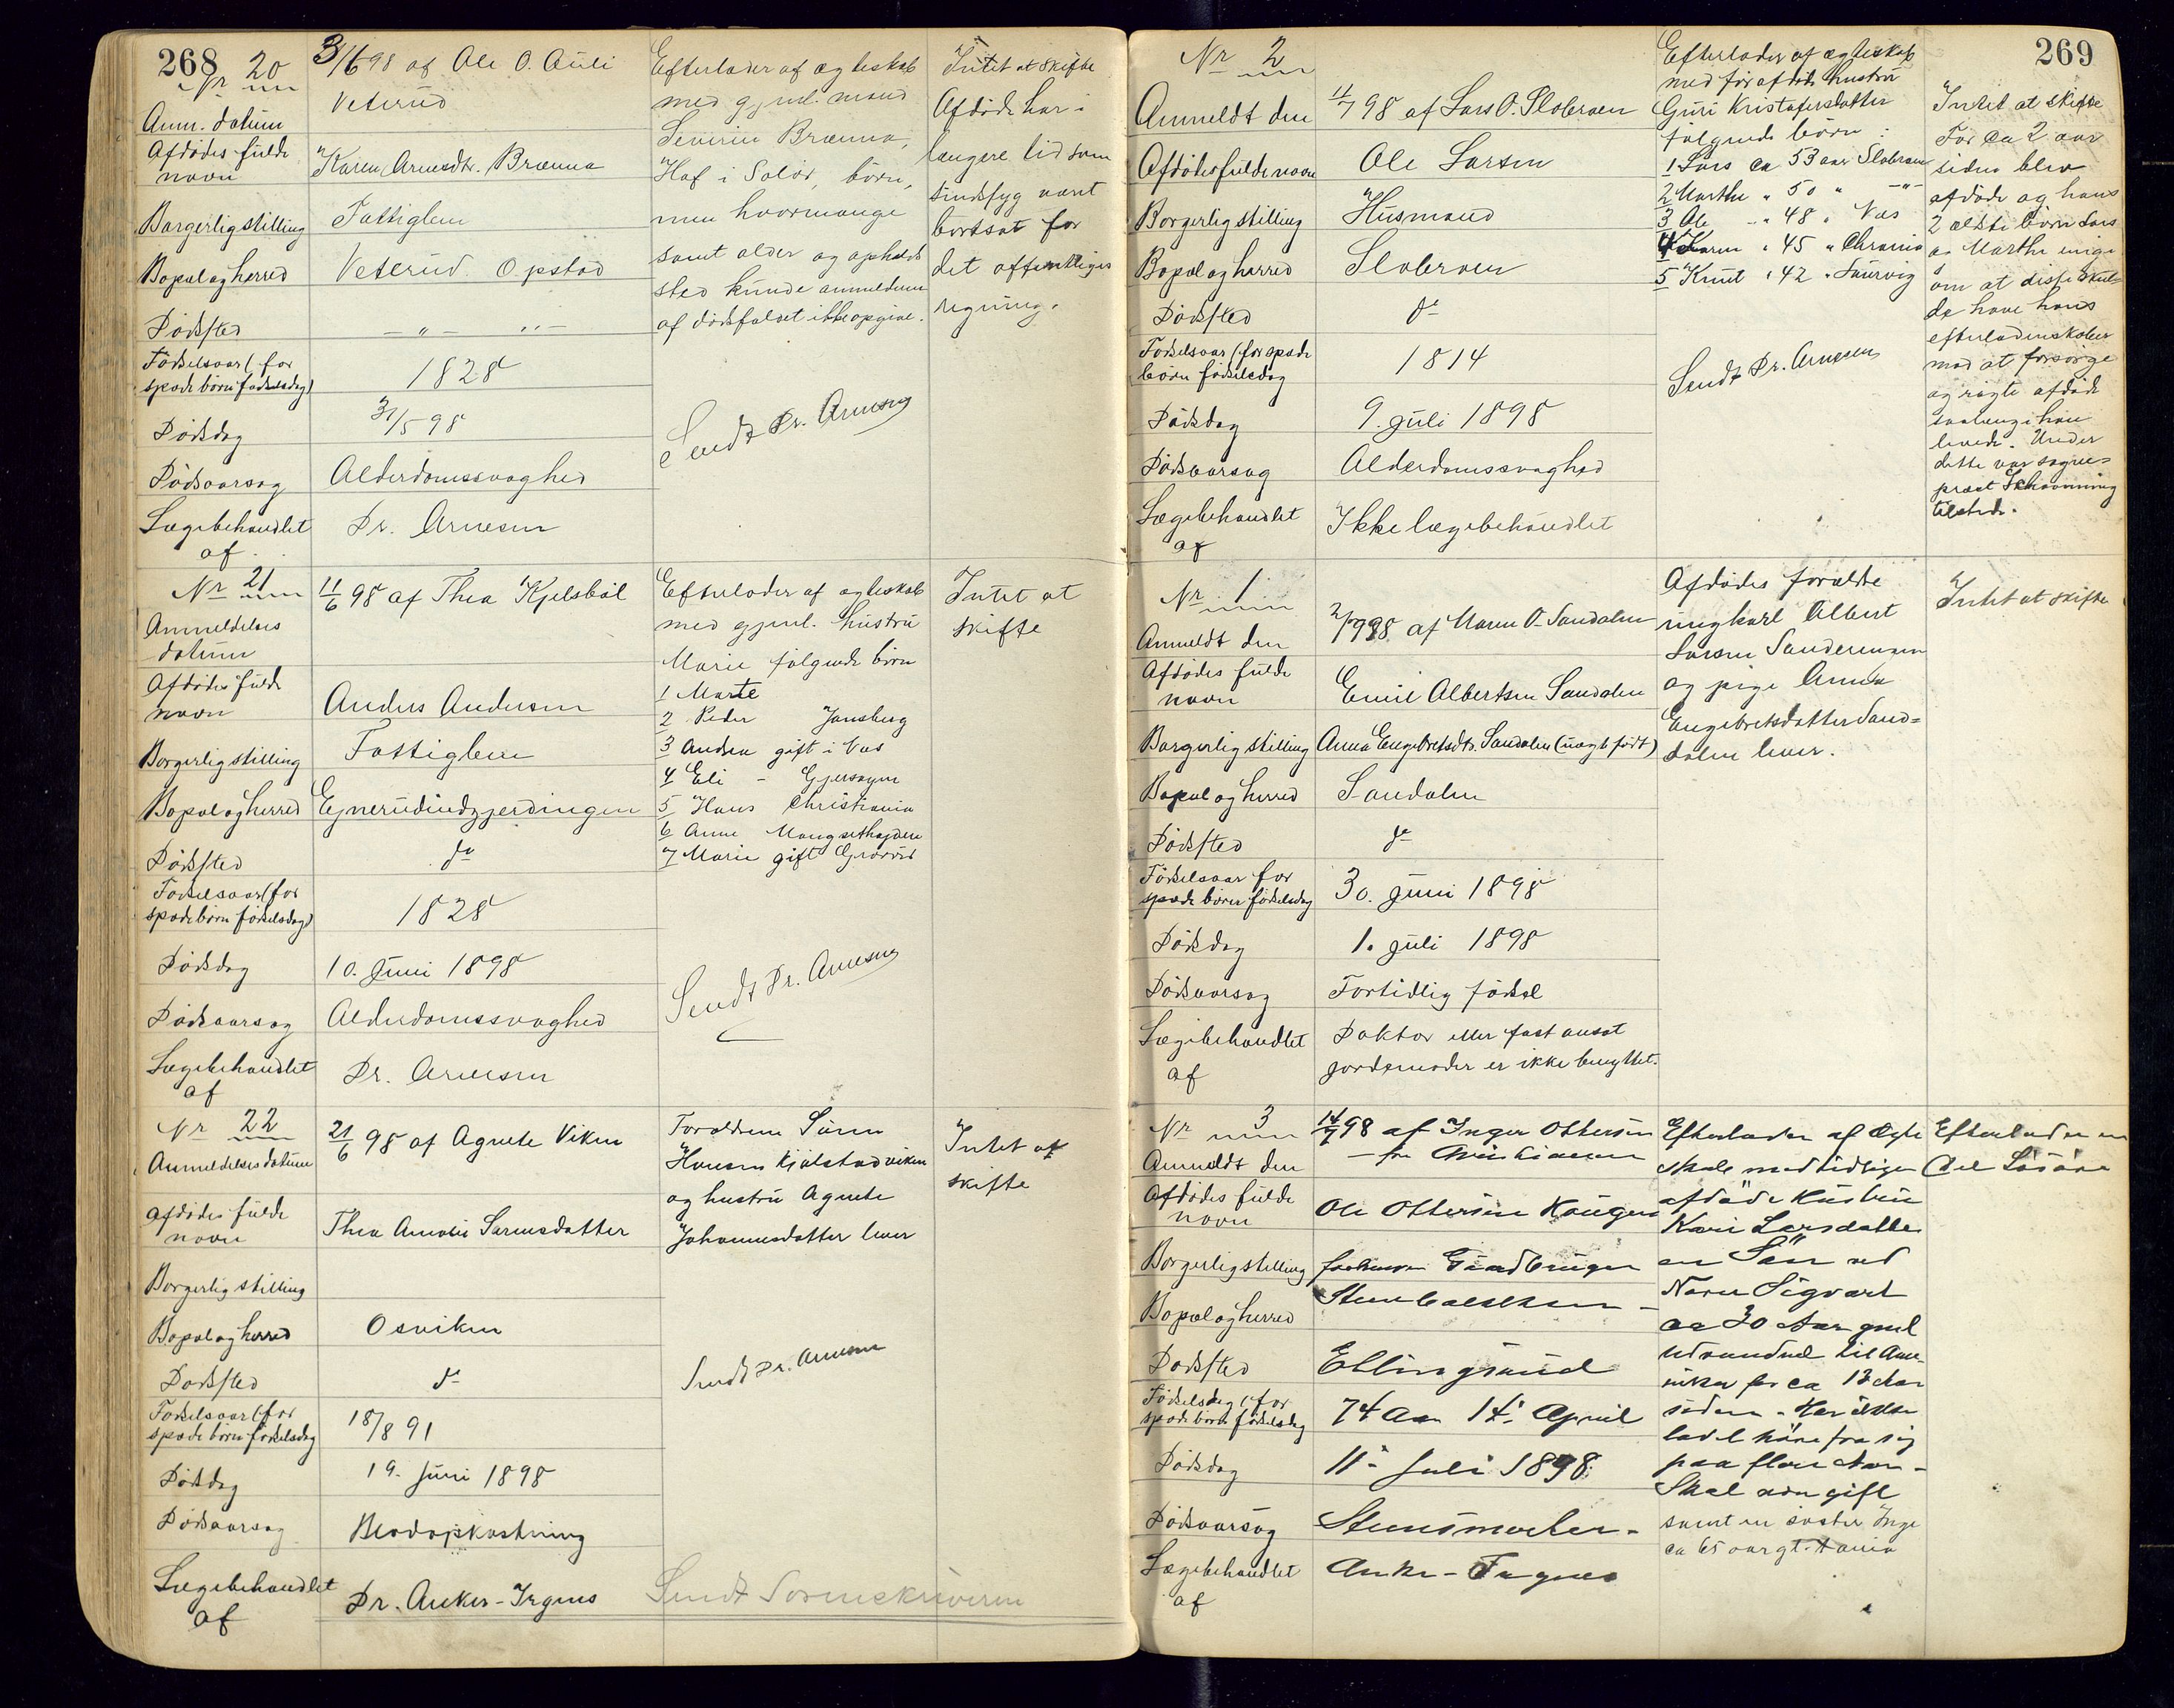 268
Nr 20
Anm. datum
3/6 98 af Ole O. Auli
Veterud
Afdødes fulde
navn
Karen Arnesdtr. Brænna
Borgerlig stilling
Fattiglem
Bopæl og herred
Veterud Opstad
Dødssted
— " — " —
Fødselsaar (for
spæde børn fødselsdag)
1828
Dødsdag
31/5 98
Dødsaarsag
Alderdomssvaghed
Lægebehandlet
af
Dr. Arnesen
Efterlader af ægteskab
med gjenl. mand
Severin Brænna,
Hof i Solør, børn,
men hvormange
samt alder og opholds
sted kunde anmelderen
af dødsfaldet ikke opgive.
Sendt Dr. Arnesen
Intet at skifte
Afdøde har i
længere tid som
sindssyg været
bortsat for
det offentliges
regning.
Nr 21
Anmeldelses
datum
11/6 98 af Thea Kjelsbøl
Afdødes fulde
navn
Anders Andersen
Borgerlig stilling
Fattiglem
Bopæl og herred
Ejnerudindgjerdingen
Dødssted
do
Fødselsaar (for
spæde børn fødselsdag)
1828
Dødsdag
10. Juni 1898
Dødsaarsag
Alderdomssvaghed
Lægebehandlet
af
Dr. Arnesen
Efterlader af ægteskab
med gjenl. hustru
Marie følgende børn
1 Marte
2 Peder Jonsberg
3 Andrea gift i Vas
4 Eli - Gjersøyen
5 Hans Christiania
6 Anne Mangsethøgden
7 Marie gift Grorud
Sendt Dr. Arnesen
Intet at
skifte
Nr 22
Anmeldelses datum
21/6 98 af Agnete Viken
Afdødes fulde
navn
Thea Amalie Sørensdatter
Borgerlig stilling
Bopæl og herred
Osviken
Dødssted
do
Fødselsaar (for
spæde børn fødselsdag
18/8 91
Dødsdag
19. Juni 1898
Dødsaarsag
Blodopkastning
Lægebehandlet
af
Dr. Anker-Irgens
Forældrene Søren
Hansen Kjølstadviken
og hustru Agnete
Johannesdatter lever
Sendt Dr. Arnesen
Sendt Sorenskriveren
Intet at
skifte
269
Nr 2
Anmeldt den
11/7 98 af Lars O. Slobraaen
Afdødes fulde navn
Ole Larsen
Borgerlig stilling
Husmand
Bopæl og herred
Slobraaen
Dødssted
do
Fødselsaar (for spæde
børn fødselsdag
1814
Dødsdag
9. Juli 1898
Dødsaarsag
Alderdomssvaghed
Lægebehandlet
af
Ikke lægebehandlet
Efterlader af ægteskab
med før afdøde hustru
Guri Kristofersdatter
følgende børn:
1 Lars ca 53 aar Slobraaen
2 Marthe " 50 " -"-
3 Ole " 48 " Vas
4 Karen " 45 " Chrania
5 Knut " 42 " Laurvig
Sendt Dr. Arnesen
Intet at skifte
For ca 2 aar
siden blev
afdøde og hans
2 ældste børn Lars
og Marthe enige
om at disse skul-
de have hans
efterladenskaber
mod at forsørge
og røgte afdøde
saalænge han
levede. Under
dette var sogne-
præst Schiønning
tilstede.
Nr 1
Anmeldt den
2/7 98 af Maren O. Sandalen
Afdødes fulde
navn
Emil Albertsen Sandalen
Borgerlig stilling
Anna Engebretsdtr. Sandalen (uægte født)
Bopæl og herred
Sandalen
Dødssted
do
Fødselsaar for
spæde børn fødselsdag
30. Juni 1898
Dødsdag
1. Juli 1898
Dødsaarsag
Fortidlig fødsel
Lægebehandlet
af
Doktor eller fast ansat
jordemoder er ikke benyttet.
Afdødes forældre
ungkarl Albert
Larsen Sanderengen
og pige Anna
Engebretsdatter Sand-
dalen lever.
Intet at skifte
Nr 3
Anmeldt den
14/7 98 af Inger Ottersen
Afdødes fulde
navn
Ole Ottersen Haugen
Borgerlig stilling
forhenv. Gaardbruger
Bopæl og herred
Dødssted
Ellingsrud
Fødselsdag (for
spæde børn fødselsdag
74 Aar 14. April
Dødsdag
11. Juli 1898.
Dødsaarsag
Lægebehandlet
af
Anker-Irgens
Efterlader af Ægte
skab med tidligere
afdøde Hustru
Kari Larsdatter
en Søn ved
Navn Sigvart
ca 30 Aar gml
udvandret til Ame-
rika for ca 13 Aar
siden. Har ikke
ladet høre fra sig
paa flere Aar -
Skal være gift
samt en søster Inge
ca 65 aar gt.
Efterlader en
Del Løsøre